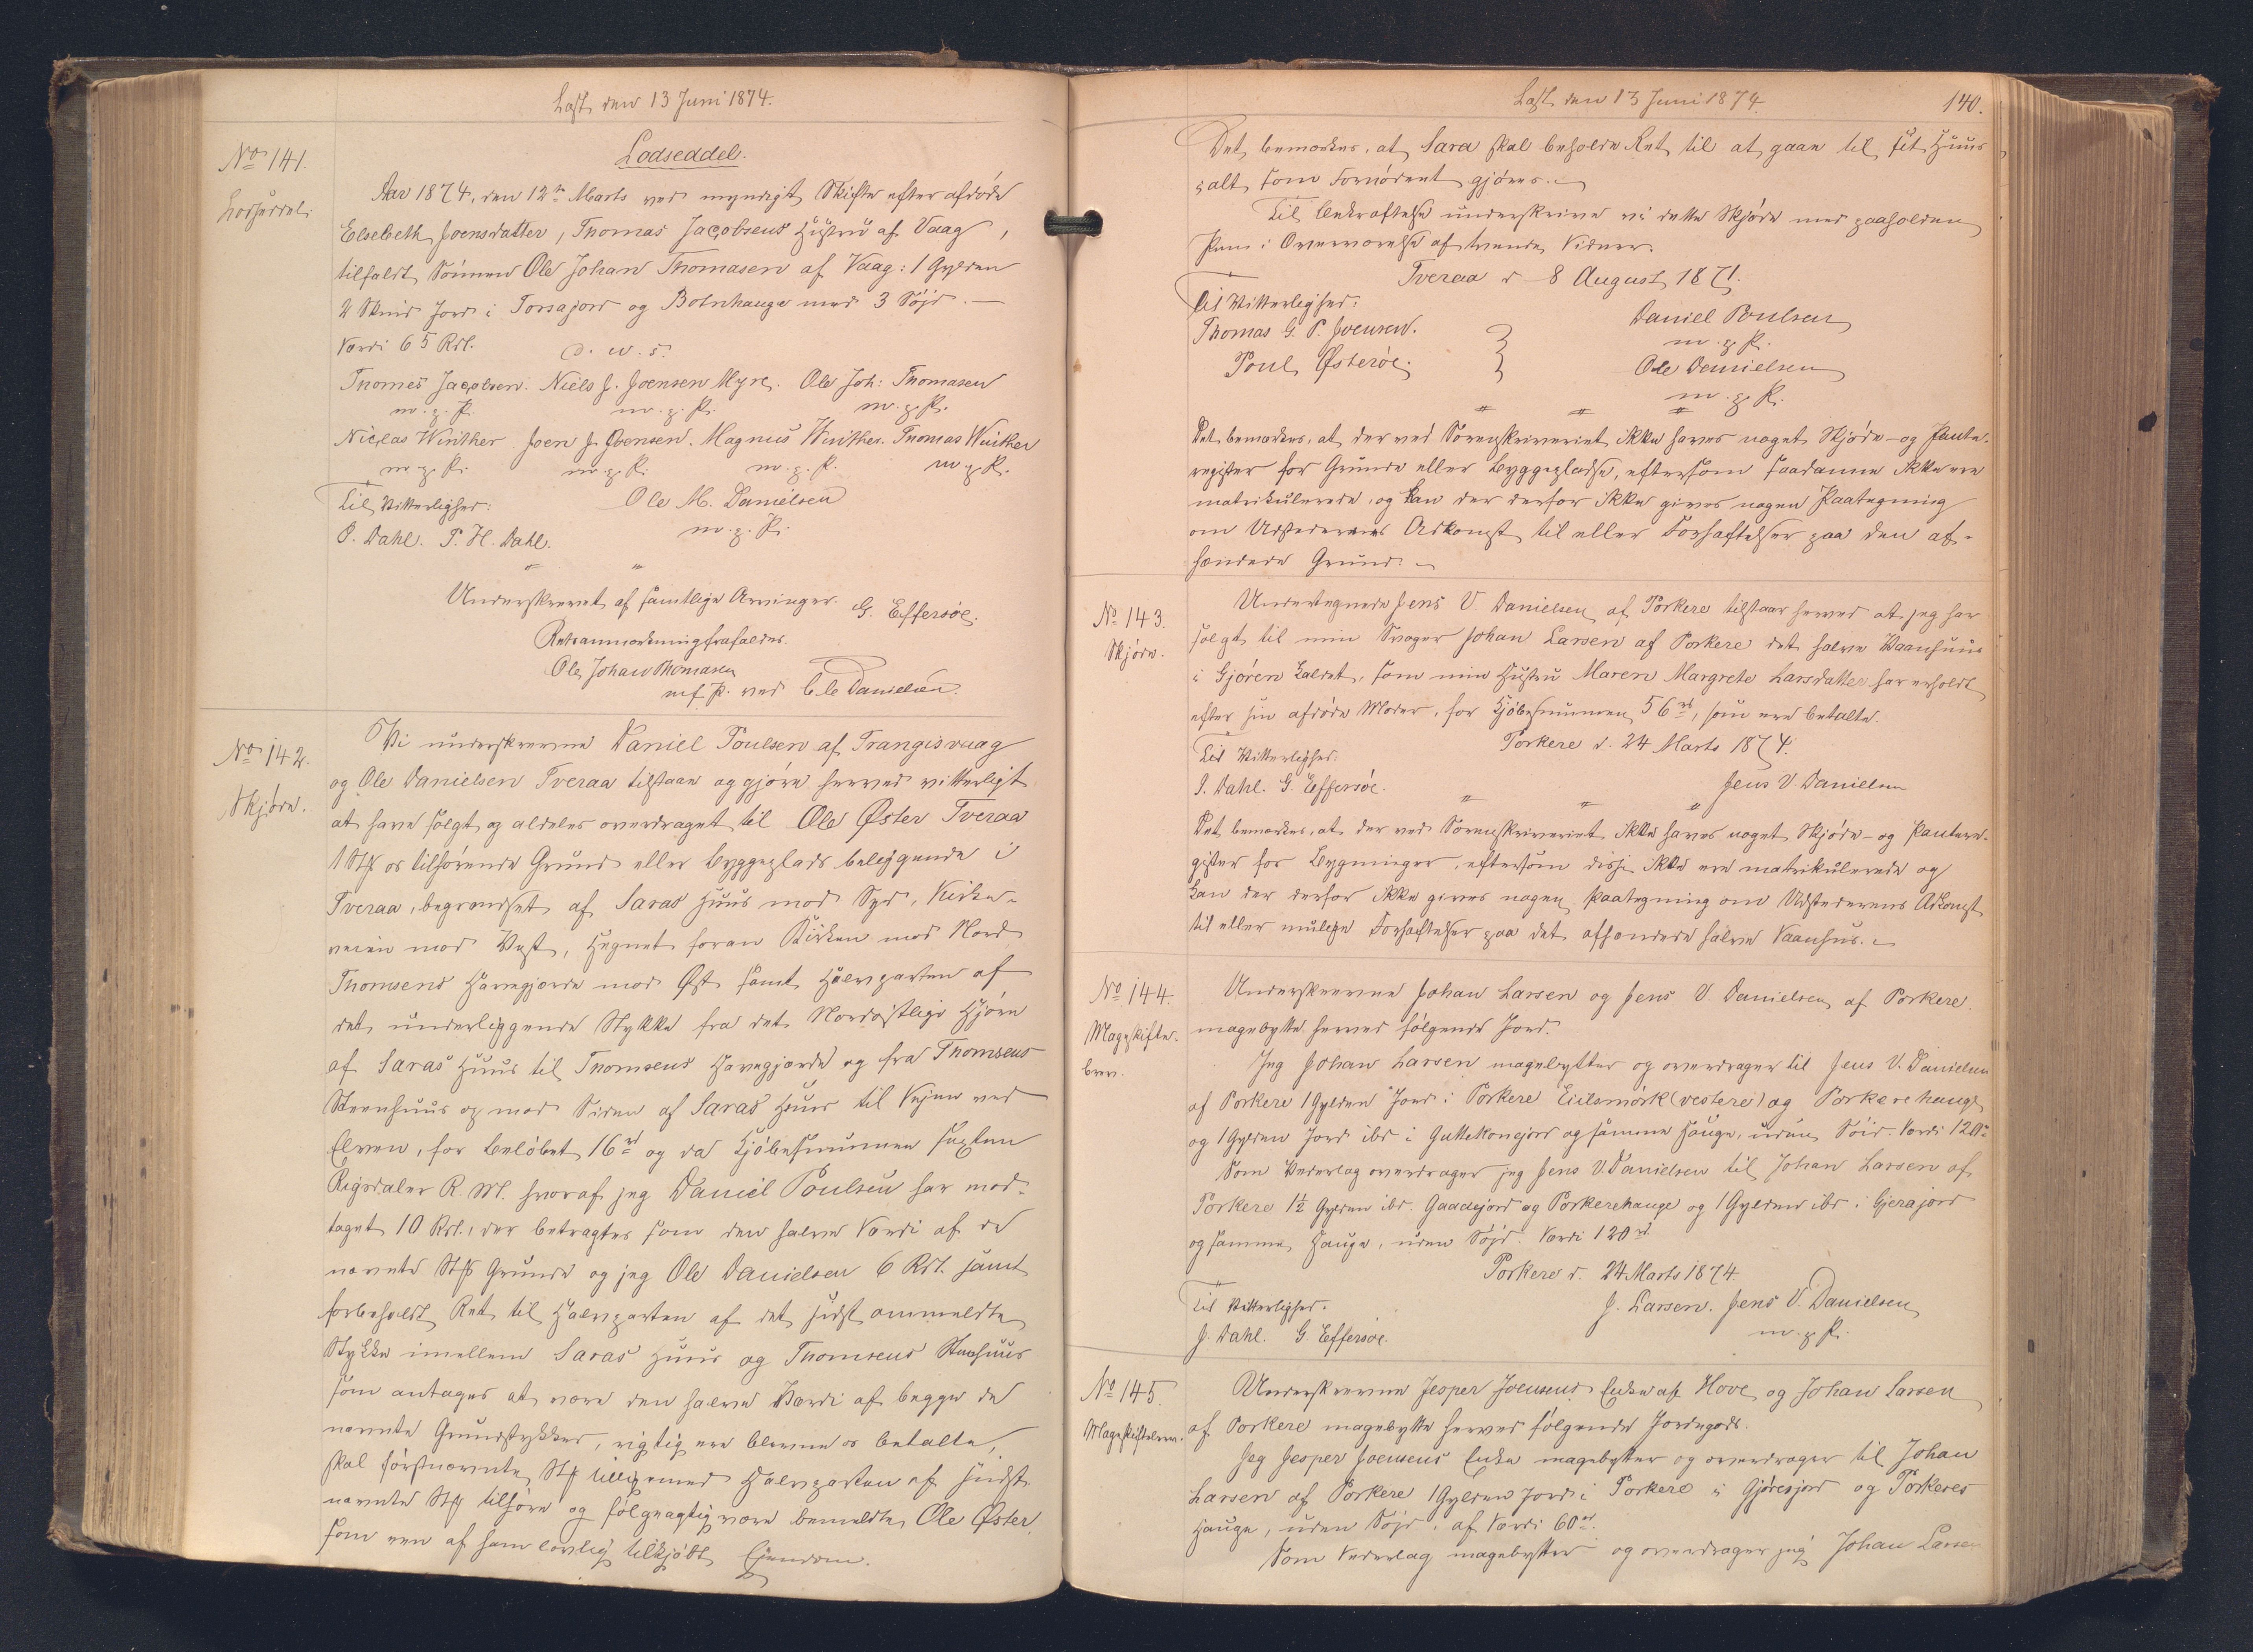 Læst den 13 Juni 1874.
No 141.
Lodseddel.
Lodseddel.
Aar 1874, den 12te Marts ved myndigt Skifte efter afdøde
Elsebeth Joensdatter, Thomas Jacobsens Hustru af Vaag,
tilfaldt Sønnen Ole Johan Thomasen af Vaag: 1 Gylden
2 Skind Jord i Torsajord og Botnhauge med 3 Søjd. —
Værdi 65 Rdl.
Thomes Jacobsen. Niels J. Joensen Myre. Ole Joh: Thomasen
m. g. P. m. g. P. m. g. P.
Niclas Winther Joen J. Joensen. Magnus Winther. Thomas Winther
m. g. P. m. g. P. m. g. P. m. g. P.
Til Vitterlighed: Ole M. Danielsen
J. Dahl. P. H. Dahl. m. g. P.
Underskrevet af samtlige Arvinger. G. Effersøe.
Retsanmærkning frafaldes.
Ole Johan Thomasen
m. f. P. ved Danielsen.
No 142.
Skjøde.
Vi underskrevne Daniel Poulsen af Trangisvaag
og Ole Danielsen Tveraa tilstaar og gjøre herved vitterligt
at have solgt og aldeles overdraget til Ole Øster Tveraa
1 Stk os tilhørende Grund eller Byggeplads beliggende i
Tveraa, begrændset af Saras Huus mod Syd, Kirke-
veien mod Vest, Hegnet foran Kirken mod Nord
Thomsens Havegjærde mod Øst samt Halvparten af
det underliggende Stykke fra det Nordøstlige Hjørne
af Saras Huus til Thomsens Havegjærde og fra Thomsens
Steenhuus og mod Siden af Saras Huus til Vejen ved
Elven, for Beløbet 16 rd og da Kjøbesummen sexten
Rigsdaler R. M. hvoraf jeg Daniel Poulsen har mod-
taget 10 Rdl., der betragtes som den halve Værdi af de
nævnte Stk Grunde og jeg Ole Danielsen 6 Rdl. samt
forbeholdt Ret til Halvparten af det sidst ommeldte
Stykke imellem Saras Huus og Thomsens Steenhuus
som antages at være den halve Værdi af begge de
nævnte Grundstykker, rigtig ere blevne os betalte,
skal førstnævnte Stk tilligemed Halvparten af sidst-
nævnte Stk tilhøre og følgagtig være bemeldte Ole Øster
som een af ham lovlig tilkjøbt Ejendom.
Læst den 13 Juni 1874. 140.
Det bemærkes, at Sara skal beholde Ret til at gaae til sit Huus
i alt som Fornødent gjøres.
Til Bekræftelse underskrive vi dette Skjøde med paaholden
Pen i Overværelse af tvende Vidner.
Tveraa d. 8 August 1871.
Til Vitterlighed:
Thomas G. P. Joensen. Daniel Poulsen
m. g. P.
Poul Østerøe. Ole Danielsen
m. g. P.
Det bemærkes, at der ved Sorenskriveriet ikke haves noget Skjøde- og Pante-
register for Grunde eller Byggepladse, eftersom saadanne ikke ere
matrikulerede, og kan der derfor ikke gives nogen Paategning
om Udstederens Adkomst til eller Forhæftelser paa den af-
hændede Grund.
No 143.
Skjøde.
Undertegnede Jens V. Danielsen af Porkere tilstaar herved at jeg har
solgt til min Svoger Johan Larsen af Porkere det halve Vaanhuus
i Gjøren kaldet, som min Hustru Maren Margrete Larsdatter har erholdt
efter sin afdøde Moder, for Kjøbesummen 56 rd, som ere betalte.
Porkere d. 24 Marts 1874.
Til Vitterlighed:
J. Dahl. G. Effersøe. Jens V. Danielsen
Det bemærkes, at der ved Sorenskriveriet ikke haves noget Skjøde- og Pantere-
gister for Bygninger, eftersom disse ikke ere matrikulerede og
kan der derfor ikke gives nogen Paategning om Udstederens Adkomst
til eller mulige Forhæftelser paa det afhændede halve Vaanhus.
No 144.
Mageskifte-
brev.
Underskrevne Johan Larsen og Jens V. Danielsen af Porkere
magebytte herved følgende Jord:
Jeg Johan Larsen magebytter og overdrager til Jens V. Danielsen
af Porkere 1 Gylden Jord i Porkere Eidsmørk (vestere) og Porkerehauge
og 1 Gylden Jord ibd i Guttekonejord og samme Hauge, uden Søid. Værdi 120 rd
Som Vederlag overdrager jeg Jens V. Danielsen til Johan Larsen af
Porkere 1½ Gylden ibd. Gaadejord og Porkerehauge og 1 Gylden ibd i Gjerajord
og samme Hauge, uden Søjd. Værdi 120 rd
Porkere d. 24 Marts 1874
Til Vitterlighed: J. Larsen. Jens V. Danielsen
J. Dahl. G Effersøe. m. g. P.
No 145.
Mageskiftebrev.
Underskrevne Jesper Joensens Enke af Hove og Johan Larsen
af Porkere magebytte herved følgende Jordegods.
Jeg Jesper Joensens Enke magebytter og overdrager til Johan
Larsen af Porkere 1 Gylden Jord i Porkere i Gjøresjord og Porkeres
Hauge, uden Søjd, af Værdi 60 rd.
Som Vederlag magebytter og overdrager jeg Johan Larsen